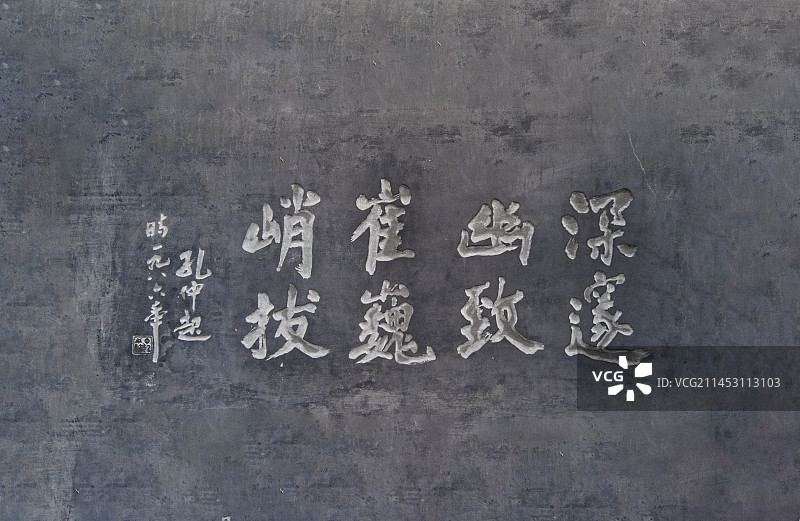 深邃
幽致
崔巍
峭拔
孔仲起
时一九八六年
VCG
ID: VCG211453113103